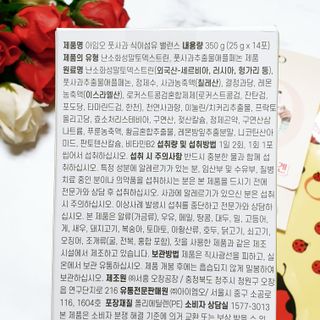 제품명 아임오 풋사과 식이섬유 밸런스 내용량 350 g (25 g x 14포)
제품의 유형 난소화성말토덱스트린, 풋사과추출물애플페논 제품
원료명 난소화성말토덱스트린(외국산-세르비아, 러시아, 헝가리 등),
풋사과추출물애플페논, 정제수, 사과농축액(칠레산), 결정과당, 레몬
농축액(이스라엘산), 로커스트콩검혼합제제(로커스트콩검, 잔탄검,
포도당, 타마린드검, 한천), 천연사과향, 이눌린/치커리추출물, 프락토
올리고당, 효소처리스테비아, 구연산, 젖산칼슘, 정제곤약, 구연산삼
나트륨, 푸룬농축액, 황금혼합추출물, 레몬밤잎추출분말, 니코틴산아
미드, 판토텐산칼슘, 비타민B2 섭취량 및 섭취방법 1일 2회, 1회 1포
씩 섭취하십시오. 섭취 시 주의사항 반드시 충분한 물과 함께 섭
취하십시오. 특정 성분에 알레르기가 있는 분, 임산부 및 수유부, 질병
치료 중인 분이나 의약품을 섭취하시는 분은 본 제품을 드시기 전에
전문가와 상담 후 섭취하십시오. 사과에 알레르기가 있으신 분은 섭취
시 주의하십시오. 이상사례 발생시 섭취를 중단하고 전문가와 상담하
십시오. 본 제품은 알류(가금류), 우유, 메밀, 땅콩, 대두, 밀, 고등어,
게, 새우, 돼지고기, 복숭아, 토마토, 아황산류, 호두, 닭고기, 쇠고기,
오징어, 조개류(굴, 전복, 홍합 포함), 잣을 사용한 제품과 같은 제조
시설에서 제조하고 있습니다. 보관방법 제품은 직사광선을 피하고, 실
온에서 보관 유통하십시오. 제품 개봉 후에는 흡습되지 않게 밀봉하여
보관하십시오. 제조원 ㈜서흥 오창공장 / 충청북도 청주시 청원구 오창
읍 연구단지로 216 유통전문판매원 ㈜아이엠오/ 서울시 중구 소공로
116, 1604호 포장재질 폴리에틸렌(PE) 소비자 상담실 1577-3013
본 제품은 소비자 분쟁 해결 기준에 의거 교환 또는 보상 받을 수 있